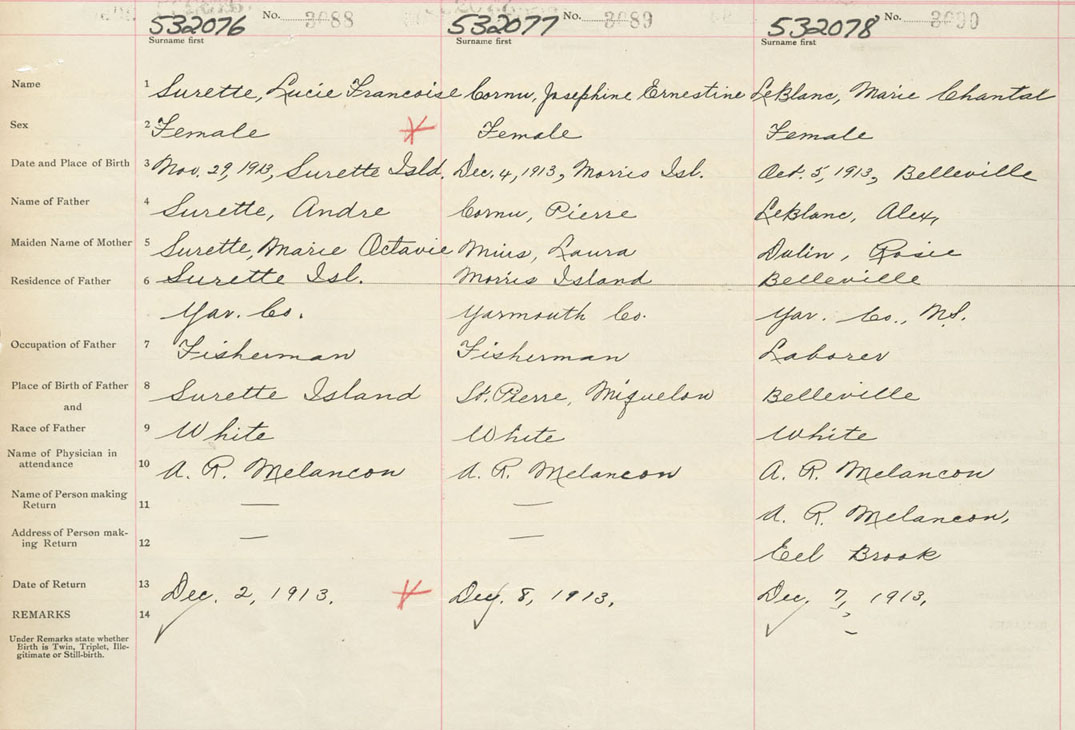 532076 No. 3688 532077 No. 3689 532078 No. 3690
Surname first Surname first Surname first
Name 1 Surette, Lucie Francoise Cornu, Josephine Ernestine LeBlanc, Marie Chantal
Sex 2 Female Female Female
Date and Place of Birth 3 Nov. 29, 1913, Surette Isld. Dec. 4, 1913, Morris Isl. Oct. 5, 1913, Belleville
Name of Father 4 Surette, Andre Cornu, Pierre LeBlanc, Alex,
Maiden Name of Mother 5 Surette, Marie Octavie Mius, Laura Dulin, Rosie
Residence of Father 6 Surette Isl. Morris Island Belleville
Yar. Co. Yarmouth Co. Yar. Co., N.S.
Occupation of Father 7 Fisherman Fisherman Laborer
Place of Birth of Father 8 Surette Island St. Pierre, Miquelon Belleville
and
Race of Father 9 White White White
Name of Physician in
attendance 10 A. R. Melancon A. R. Melancon A. R. Melancon
Name of Person making
Return 11 — — A. R. Melancon,
Address of Person mak-
ing Return 12 — — Eel Brook
Date of Return 13 Dec. 2, 1913. Dec. 8, 1913, Dec. 7, 1913,
REMARKS 14
Under Remarks state whether
Birth is Twin, Triplet, Ille-
gitimate or Still-birth.